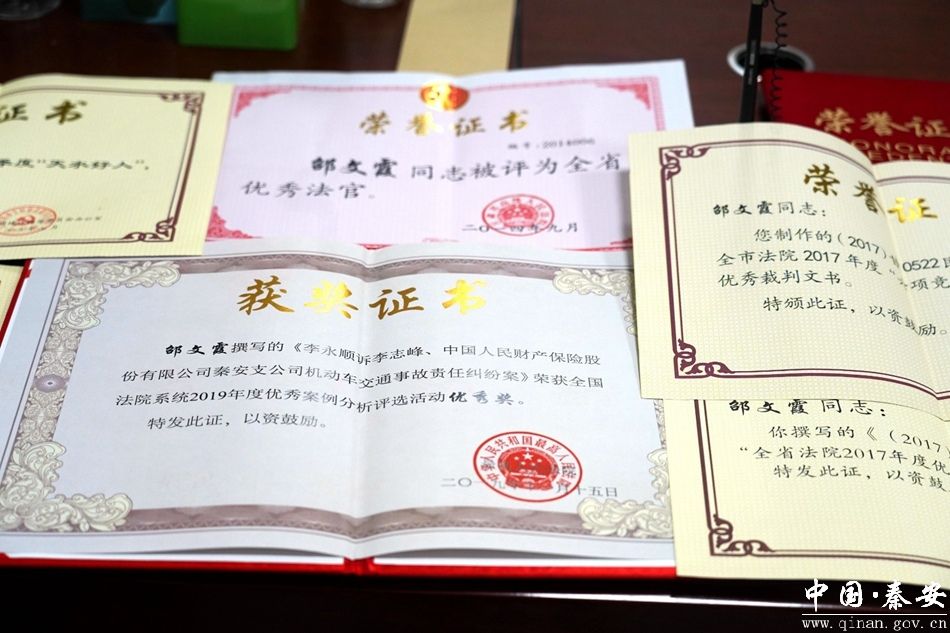 证书
季度“天水好人”，
荣誉证书
编号：2014006
邹文霞 同志被评为全省
优秀法官。
二〇一四年九月
荣誉证
HONORA
荣誉证
邹文霞同志：
您制作的（2017）
0522民
全市法院2017年度“
项竞
优秀裁判文书。
特颁此证，以资鼓励。
获奖证书
邹文霞撰写的《李永顺诉李志峰、中国人民财产保险股
份有限公司秦安支公司机动车交通事故责任纠纷案》荣获全国
法院系统2019年度优秀案例分析评选活动优秀奖。
特发此证，以资鼓励。
中华人民共和国最高人民法院
二〇一九年
月十五日
邹文霞同志：
你撰写的《（2017）
“全省法院2017年度优
特发此证，以资鼓
中国·秦安
www.qinan.gov.cn